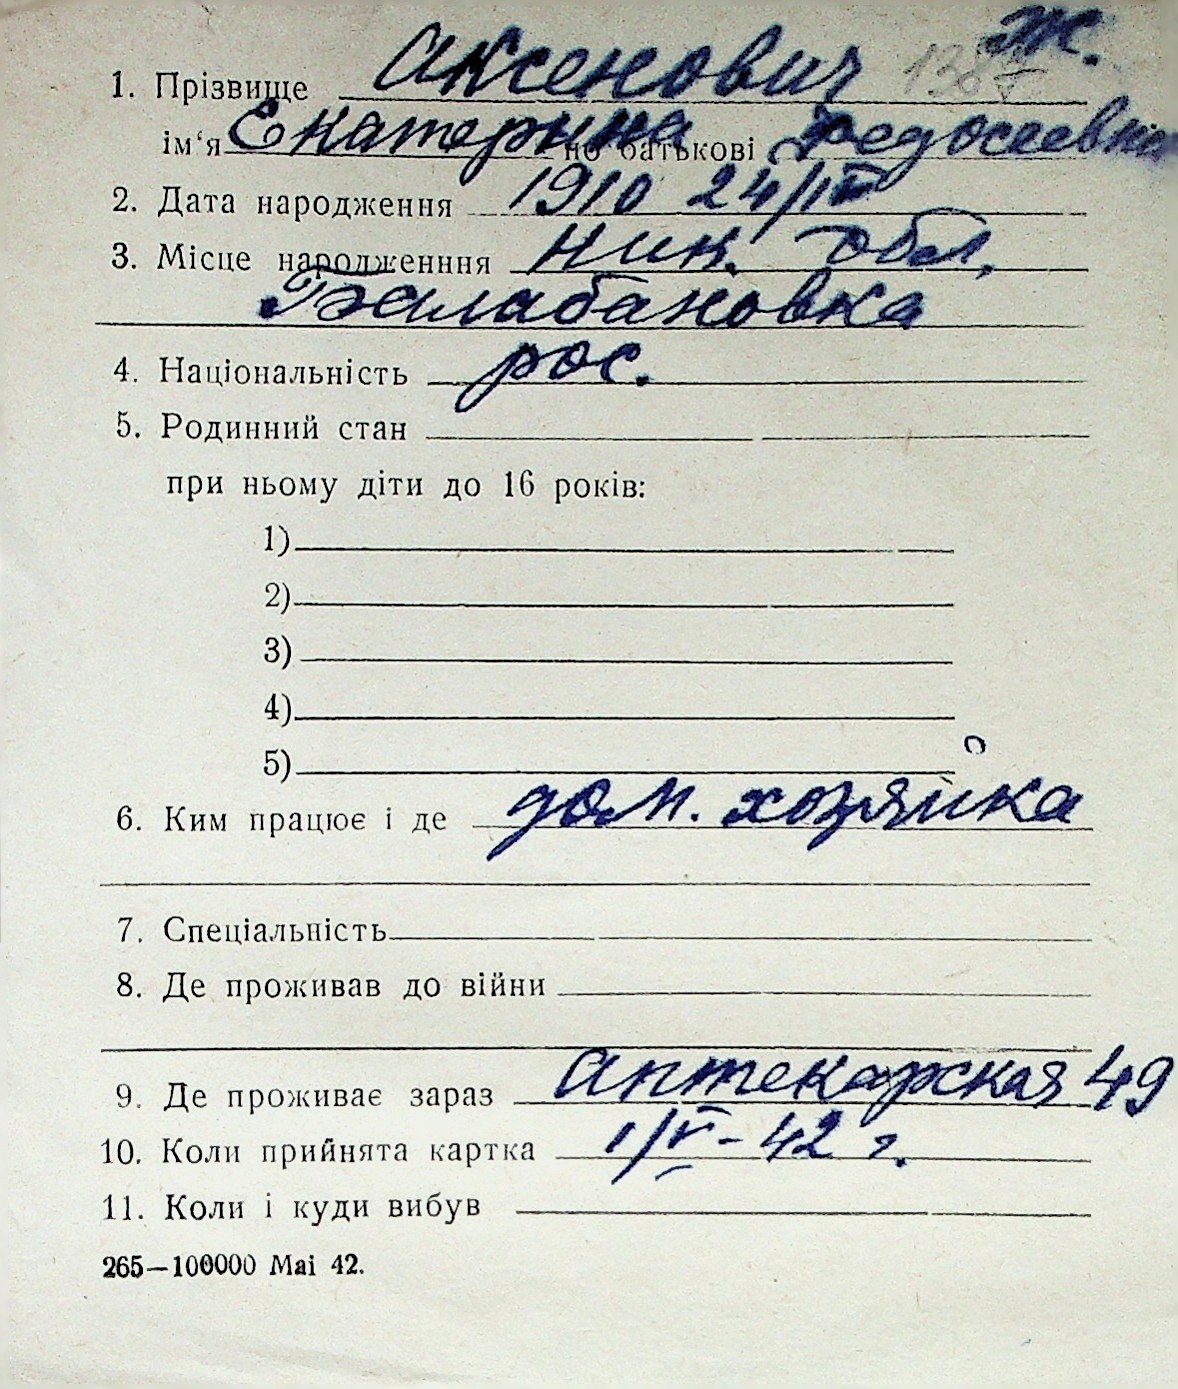 ж.
1. Прізвище Аксенович
ім‘я Екатерина по батькові Федосеевна
2. Дата народження 1910 24/IV
3. Місце народженння Ник. обл.
Балабановка
4. Національність рос.
5. Родинний стан
при ньому діти до 16 років:
1)
2)
3)
4)
5)
6. Ким працює і де дом. хозяйка
7. Спеціальність
8. Де проживав до війни
9. Де проживає зараз Аптекарская 49
10. Коли прийнята картка 1/V-42 г.
11. Коли і куди вибув
265—100000 Mai 42.